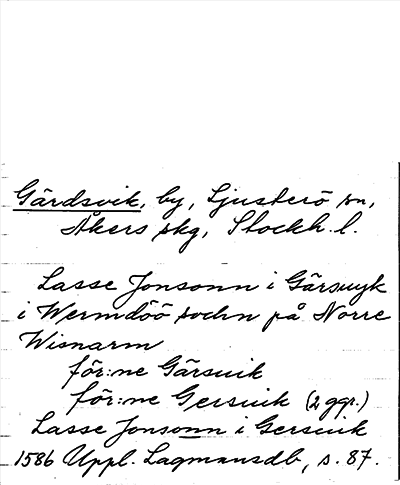 Gärdsvik, by, Ljusterö sn,
Åkers skg, Stockh. l.
Lasse Jonsonn i Gärsuyk
i Wermdöö sochn på Norre
Wisnarm
för:ne Gärsuik
för:ne Gersuik (2 ggr.)
Lasse Jonsonn i Gersuik
1586 Uppl. Lagmansdb, s. 87.